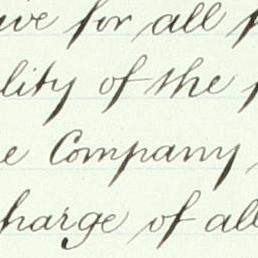 ive for all p
lity of the p
e Company
harge of all